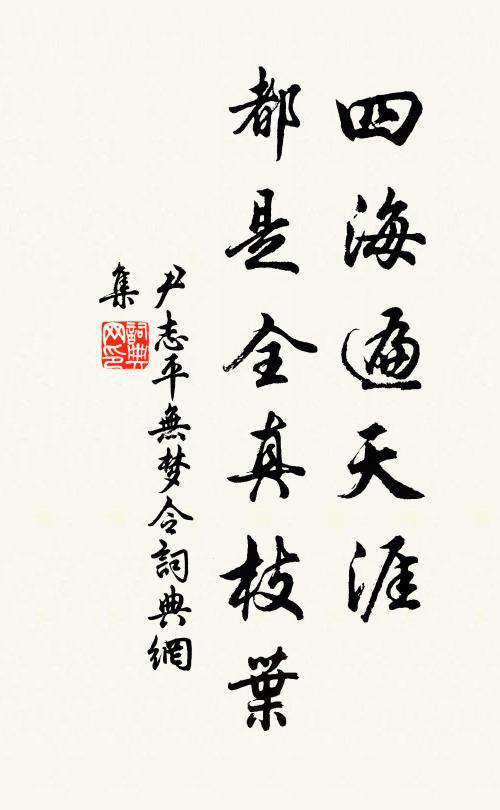 四海遍天涯
都是全真枝葉
尹志平無梦令詞典網
集
詞典
网印